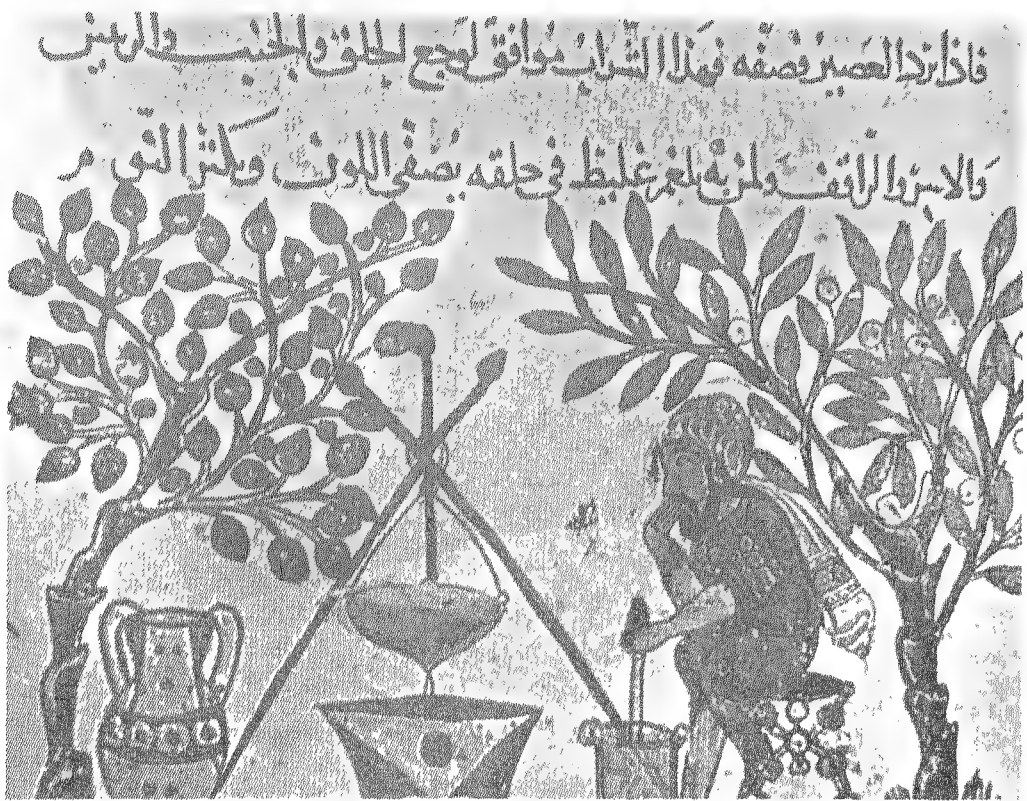 فاذا برد العصير فصفه فهذا الشراب موافق لوجع الحلق والجنب والرئتين
والا سر والراقف ولمن به بلغم غليظ في حلقه يصفي اللون ويكثر النوم